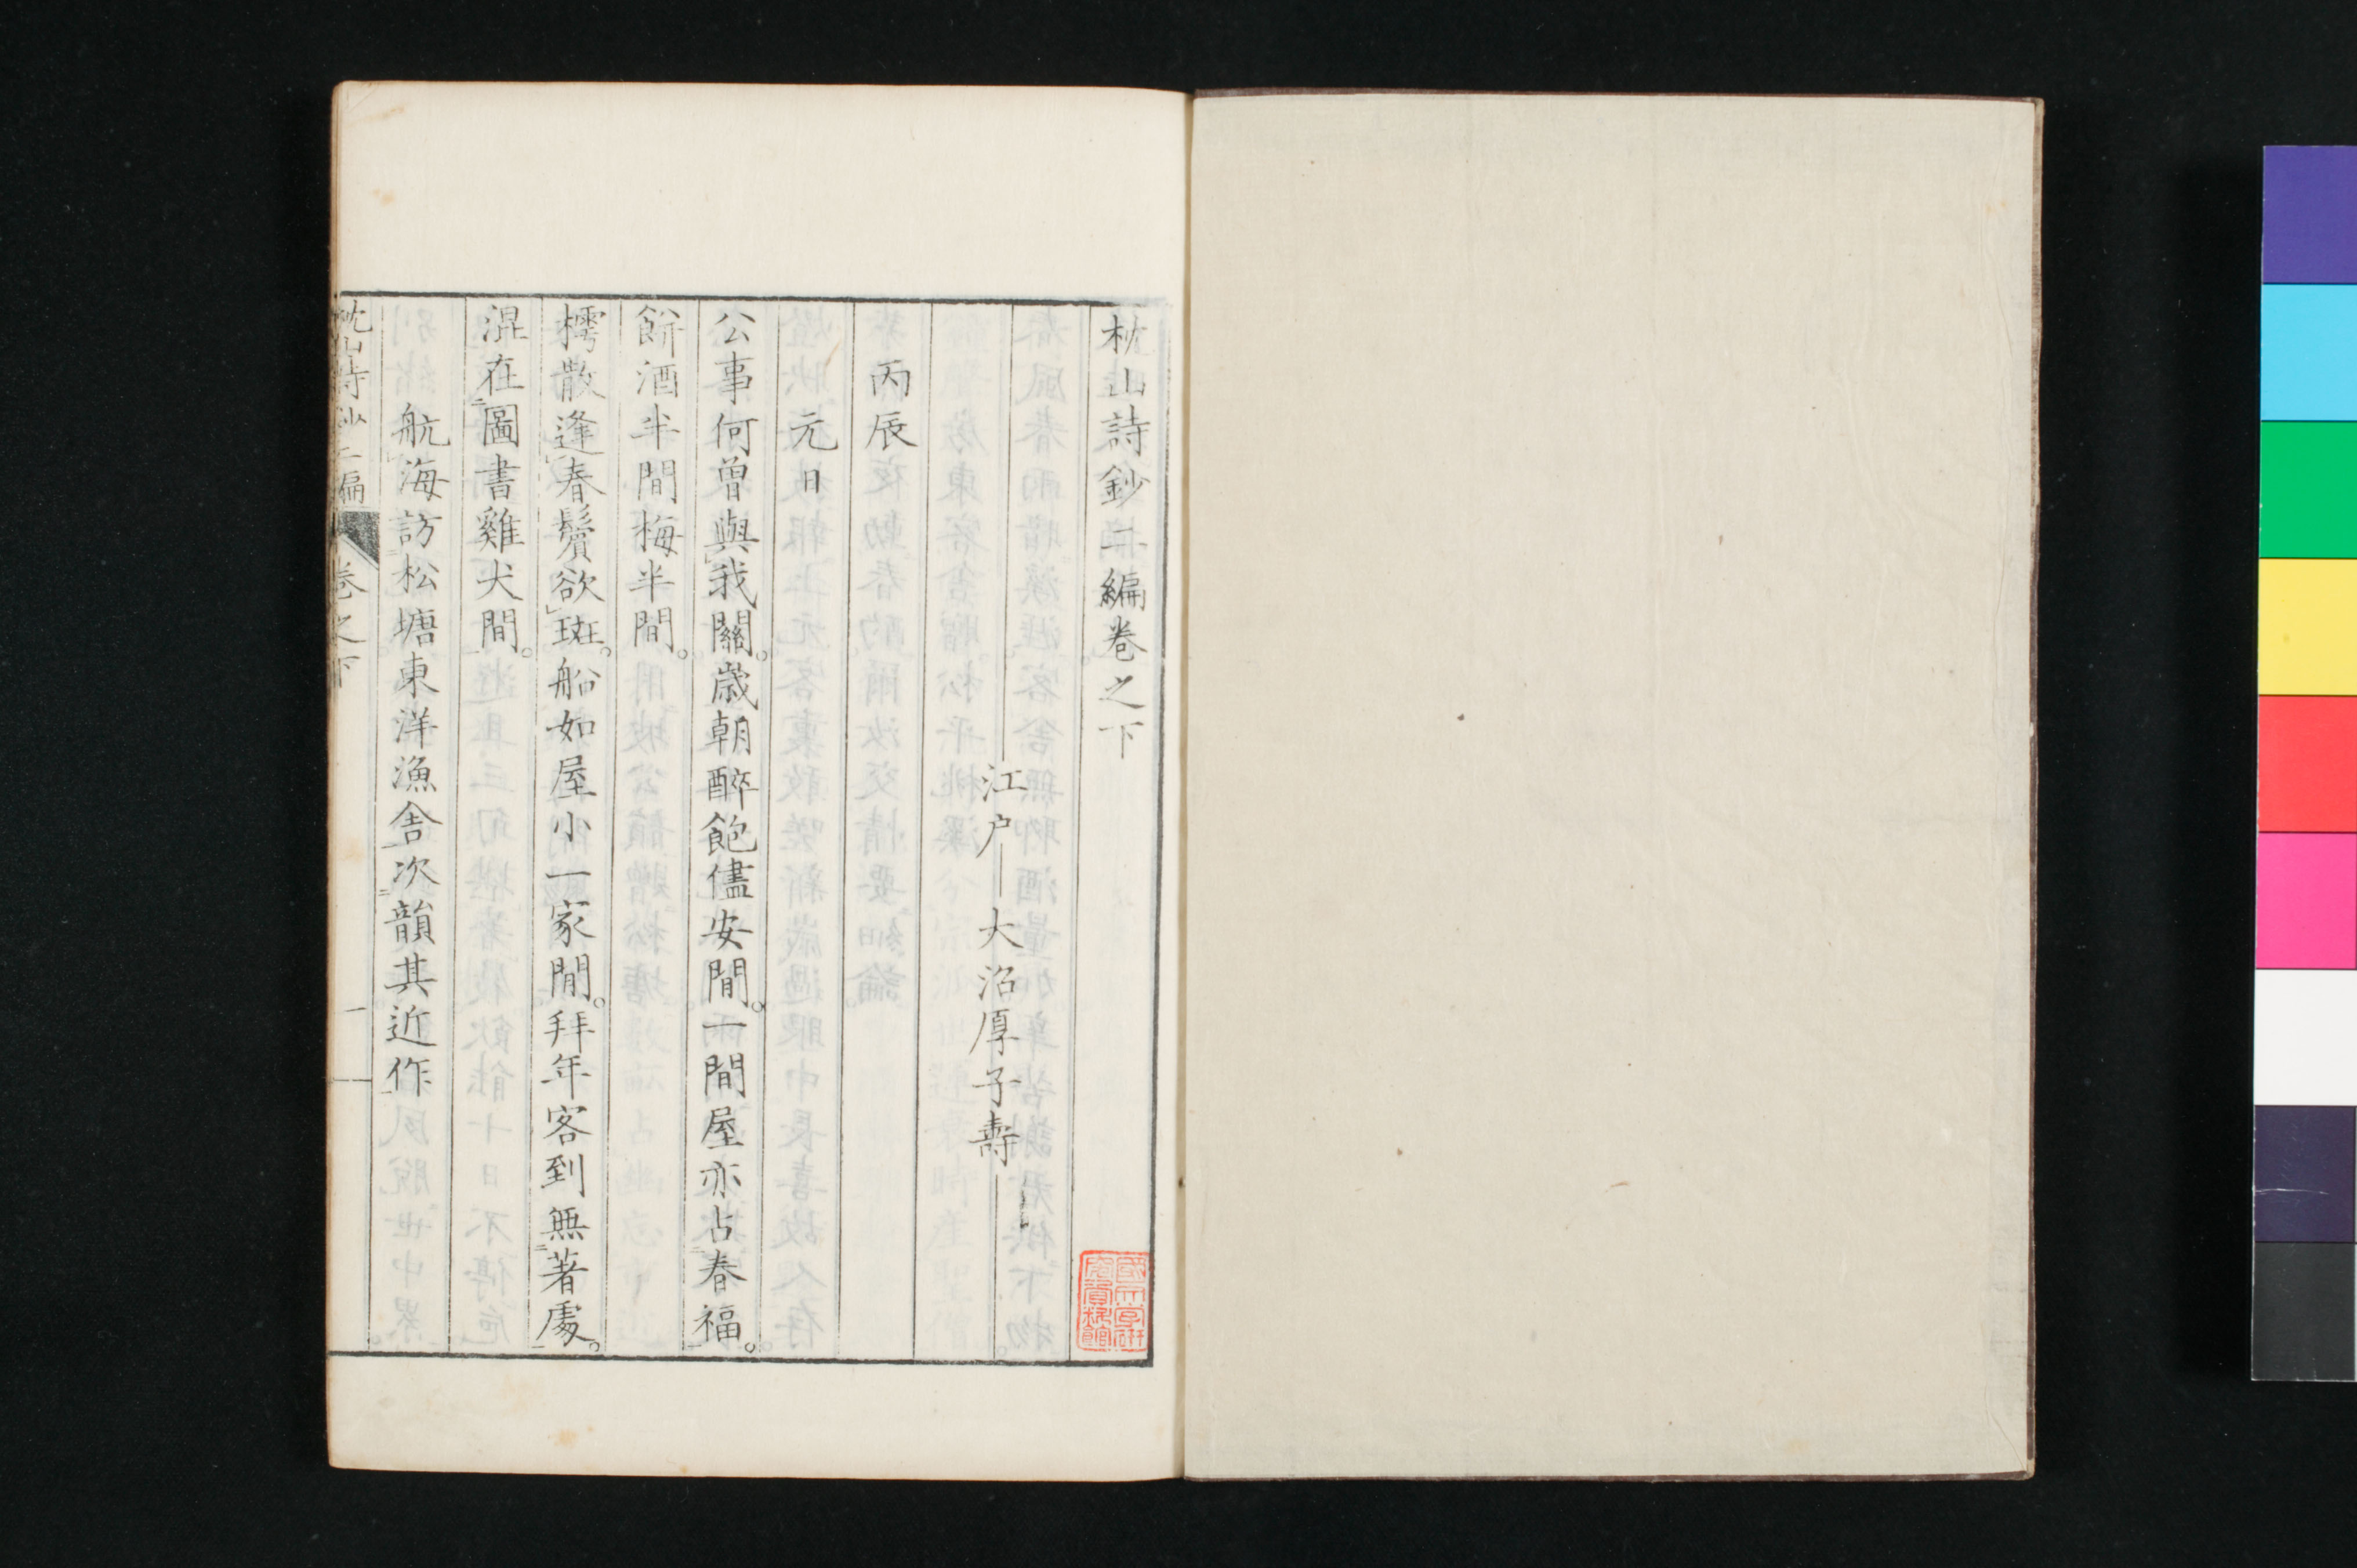 枕山詩鈔二編卷之下
江戶 大沼厚子壽
丙辰
元日
公事何曾與我關。歳朝醉飽儘安閒。一間屋亦占春福。
餠酒半間梅半間。
樗散逢春鬢欲斑。船如屋小一家閒。拜年客到無著處。
混在圖書雞犬間。
航海訪松塘東洋漁舎次韻其近作
枕山詩鈔二編 卷之下 一